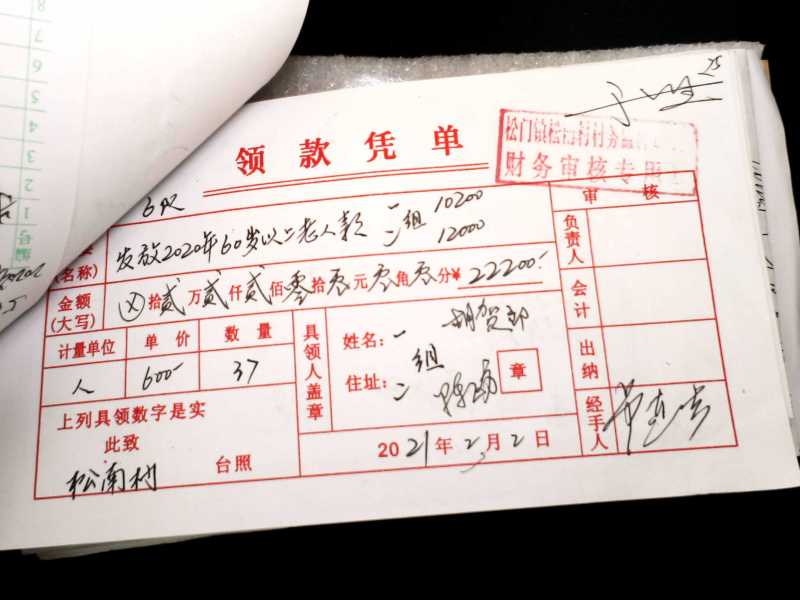 8
7
6
5
4
3
2
1
编号
领款凭单
财务审核专用
发放2020年60岁以上老人款 一 组 10200
二 12000
(名称)
金额(大写) ⊗拾贰万贰仟贰佰零拾零元零角零分¥22200-
计量单位 单价 数量
人 600- 37
具领人盖章
姓名: 一 胡贺郎
组
住址: 二
章
上列具领数字是实
此致
松南村 台照
2021年2月2日
审核
负责人
会计
出纳
经手人